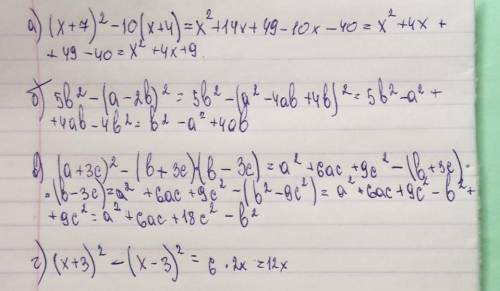 а) (x+7)² -10(x+4)=x²+14x+49-10x-40=x²+4x+
+49-40=x²+4x+9.
б) 5b²-(a-2b)²=5b²-(a²-4ab+4b)²=5b²-a²+
+4ab-4b²=b²-a²+4ab
в) (a+3c)²-(b+3c)(b-3c)=a²+6ac+9c²-(b+3c)·
·(b-3c)=a²+6ac+9c²-(b²-9c²)=a²+6ac+9c²-b²+
+9c²=a²+6ac+18c²-b²
г) (x+3)²-(x-3)²=6·2x=12x